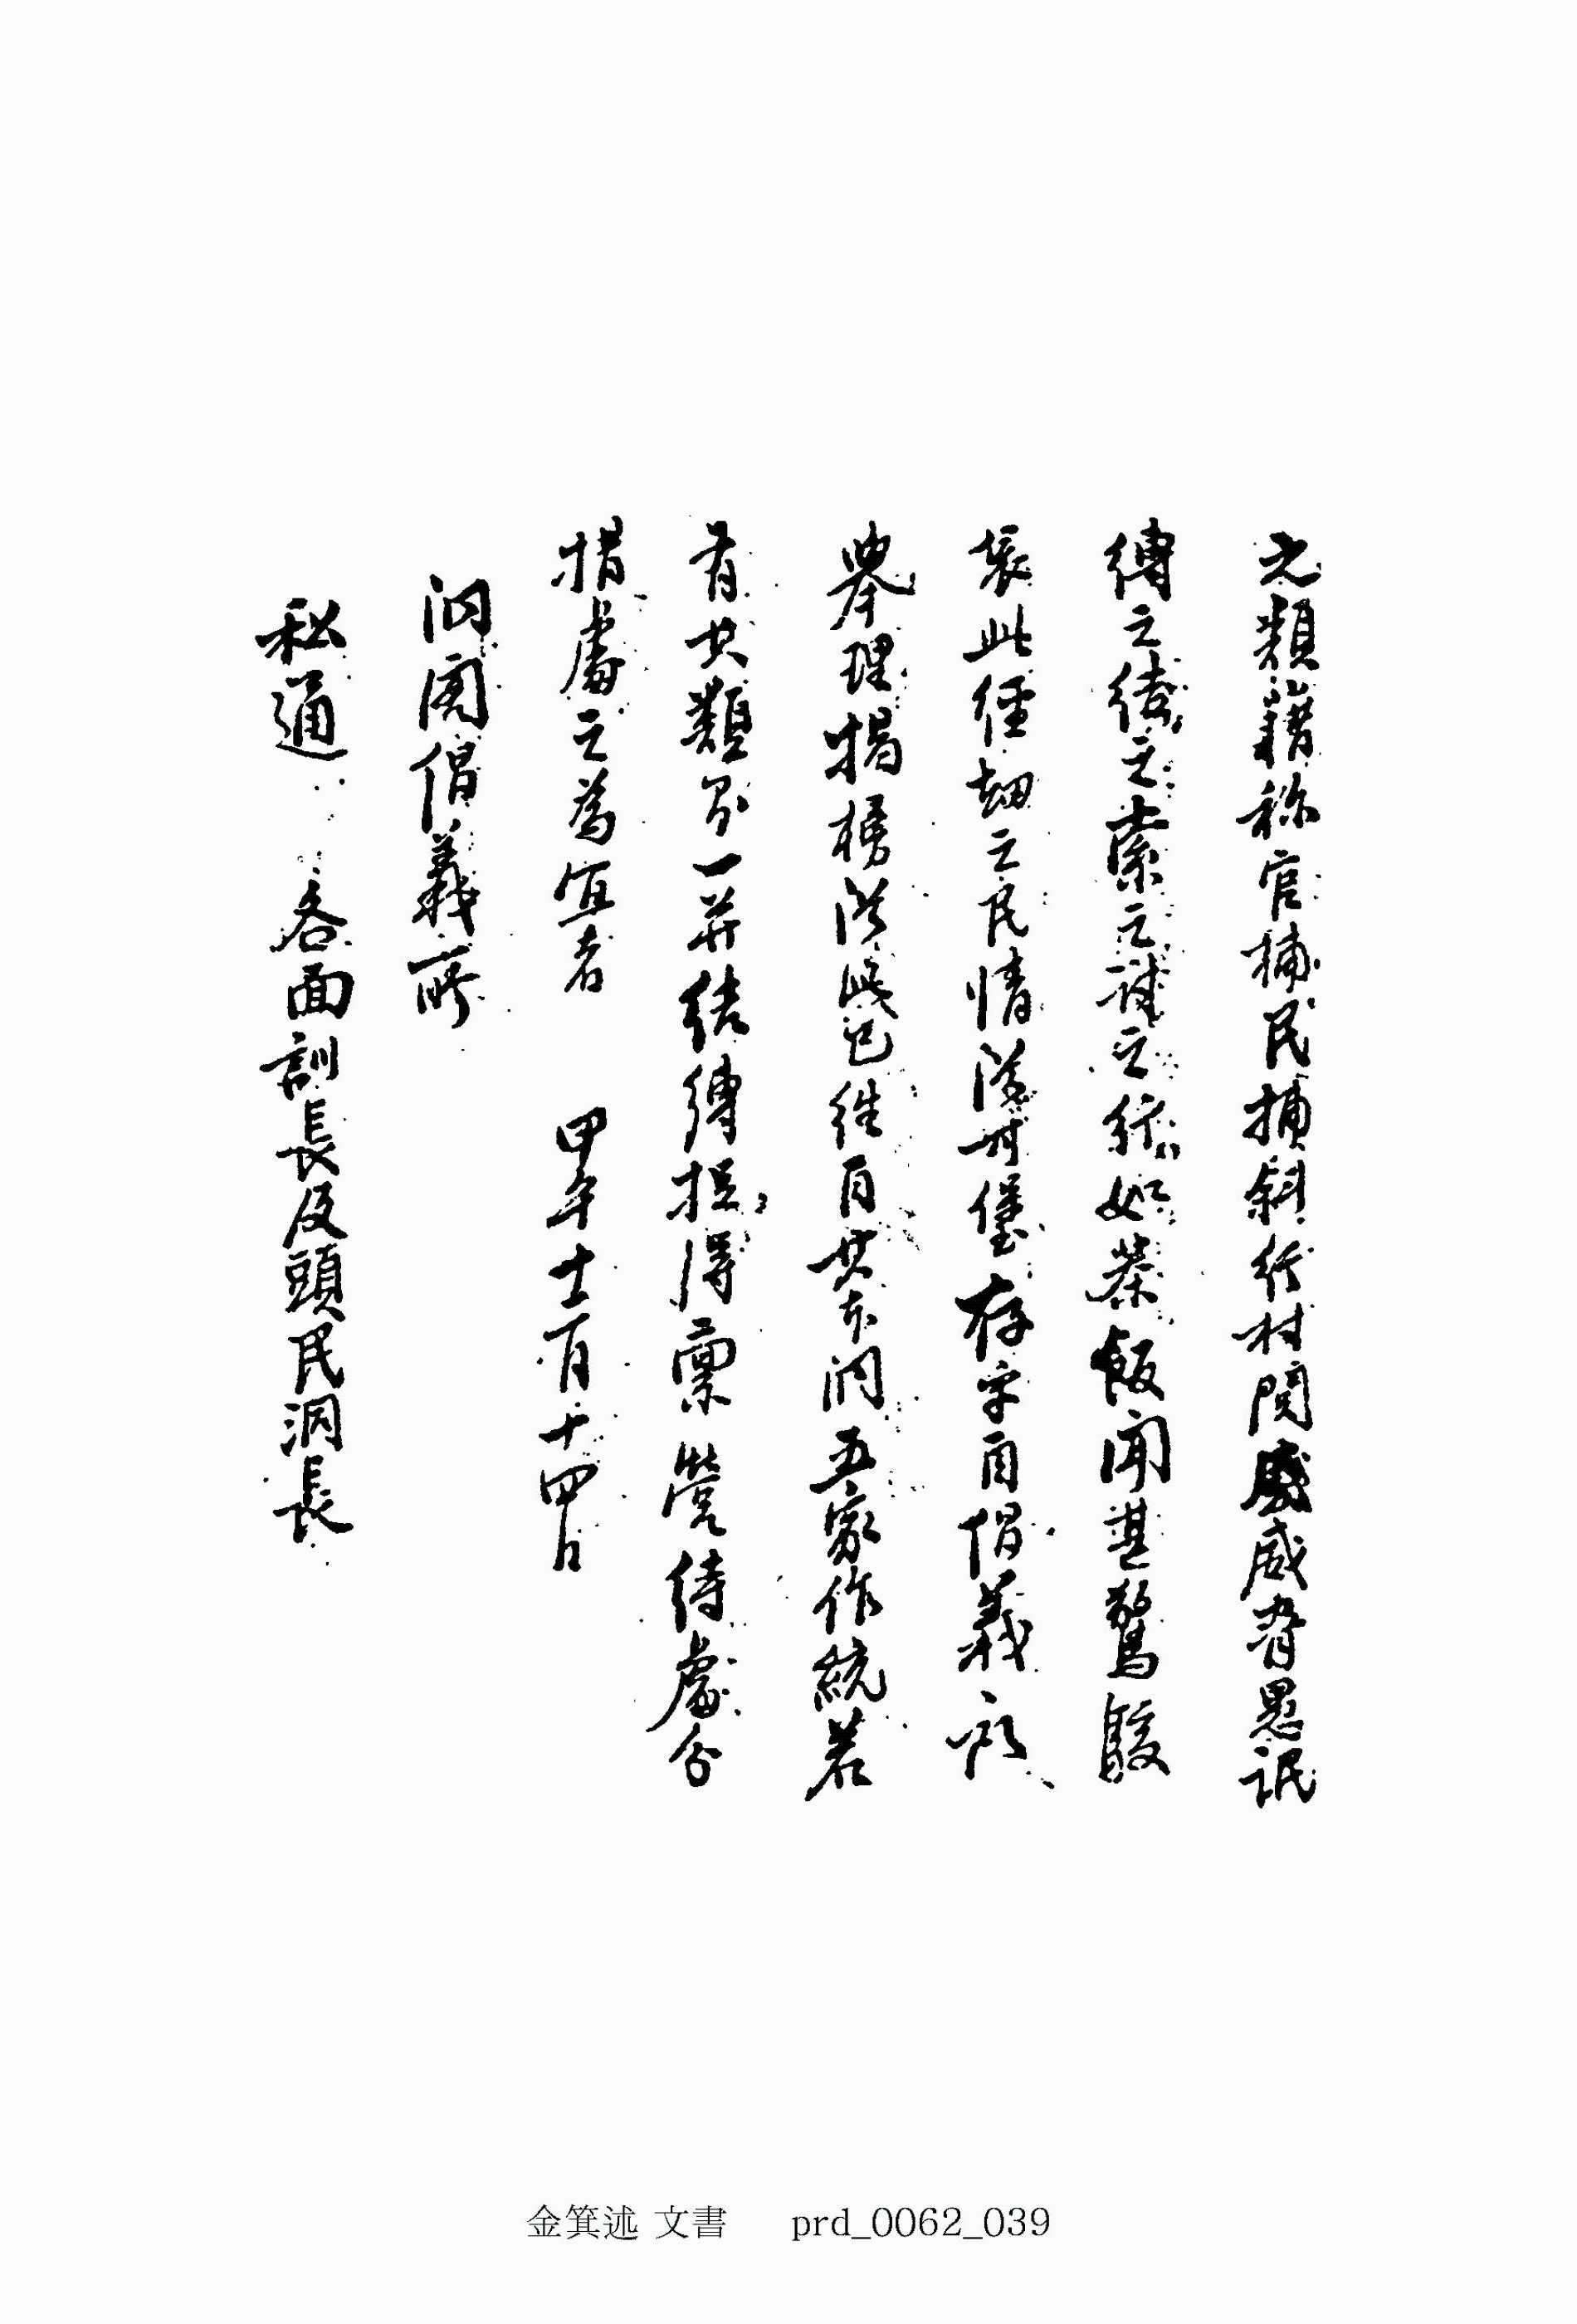 之類藉称官捕民捕斜行村閭威脅愚氓
縛之结之索之□之行如茶飯聞甚驚駭
哀此經劫之民情從何堡存字自倡義所
擧理揭榜後此已往自其本洞五家作統若
有如類則一并结縛捉得稟營待處分
措處之爲宜者 甲午十二月十四日
洞閤倡義所
私通 各面訓長及頭民洞長
金箕述 文書 prd_0062_039